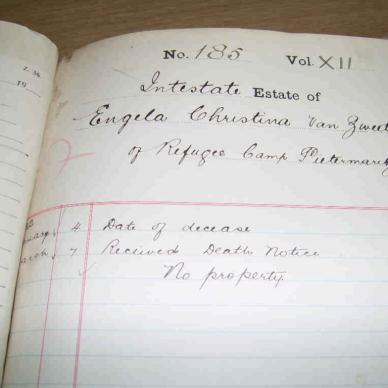 Z. 36
19
No. 185 Vol. XII
Intestate Estate of
Engela Christina Van Zweet
of Refugee Camp Pietermaritz
4 Date of decease
7 Recieved Death Notice
No property